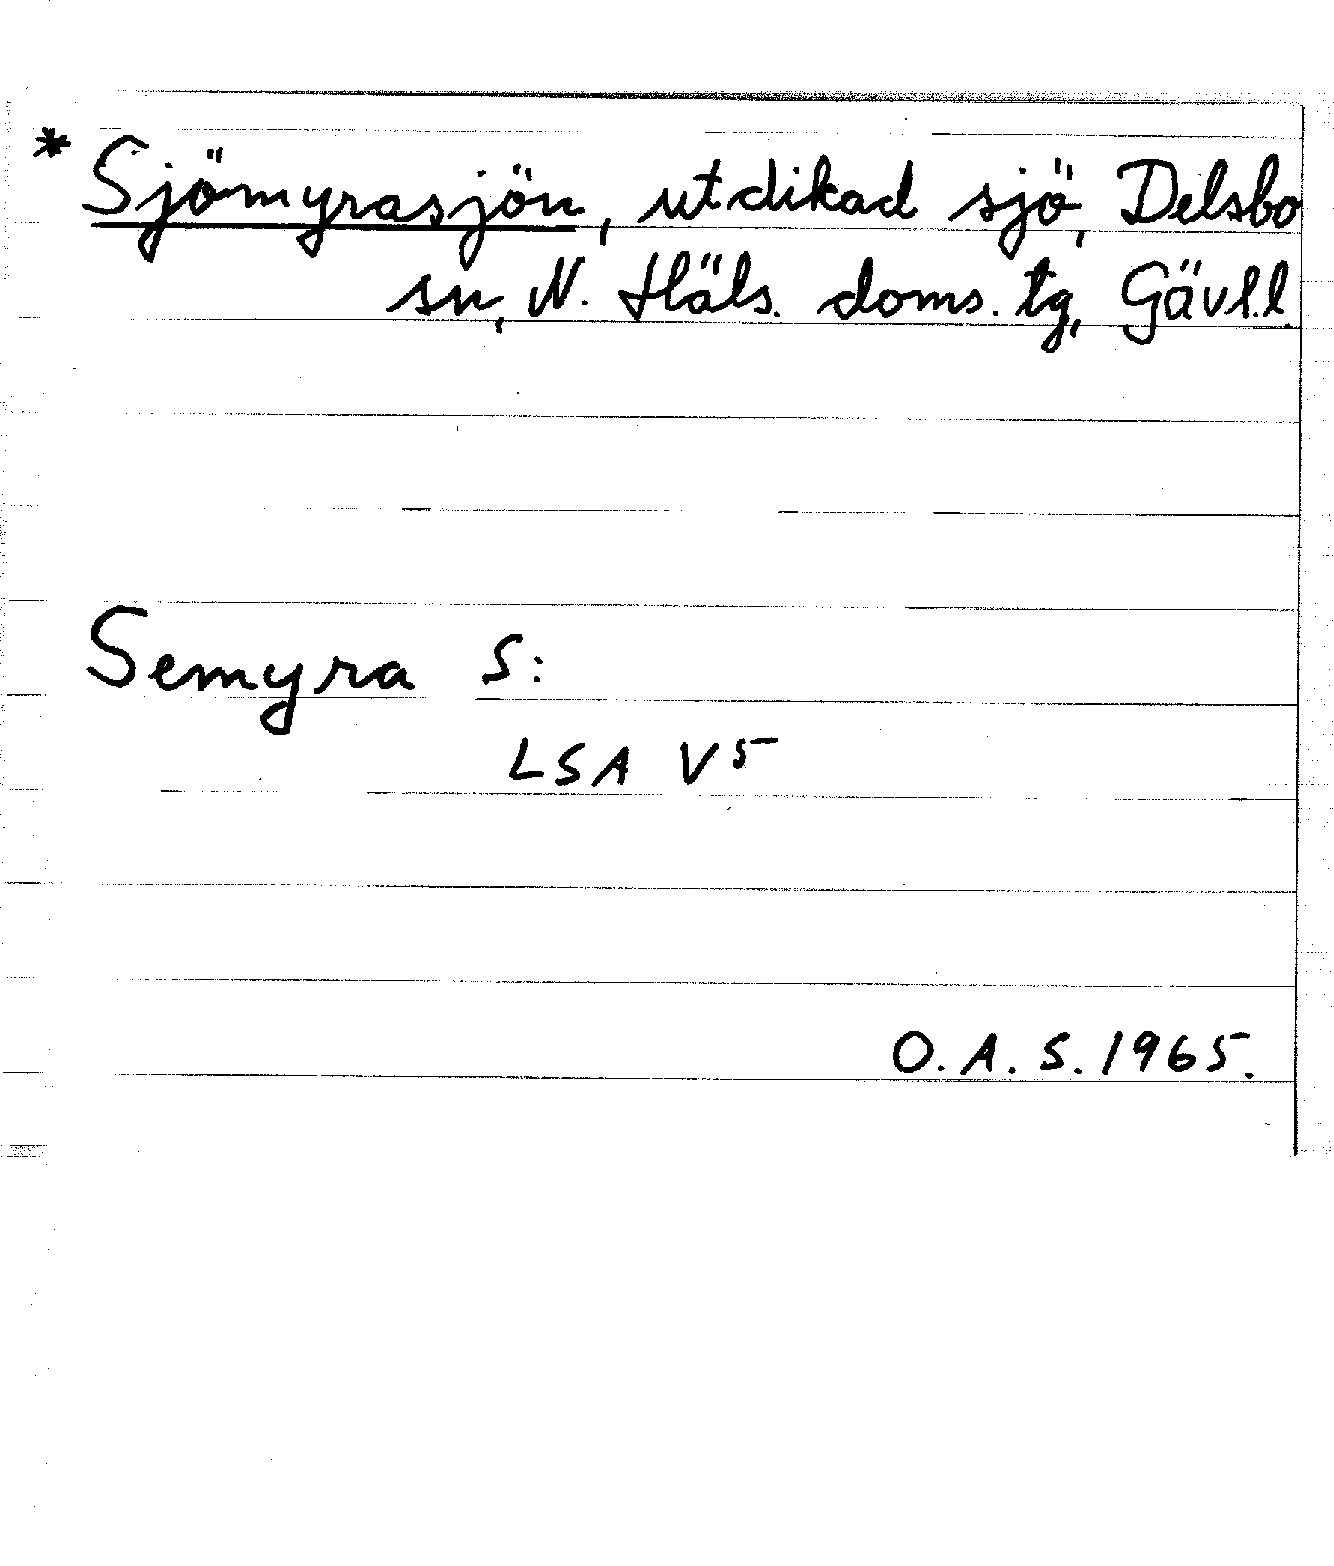 * Sjömyrasjön, utdikad sjö, Delsbo
sn, N. Häls. doms. tg, Gävl.l.
Semyra S:
LSA V5
O.A.S. 1965.